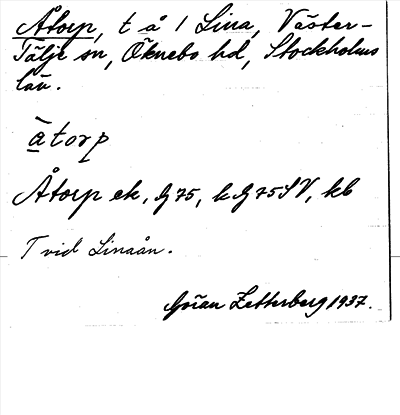 Åtorp, t å 1 Lina, Väster-
Tälje sn, Öknebo hd, Stockholms
län.
åtorp
Åtorp ek, G 75, k G 75 SV, kb
T vid Linaån.
Göran Zetterberg 1937.